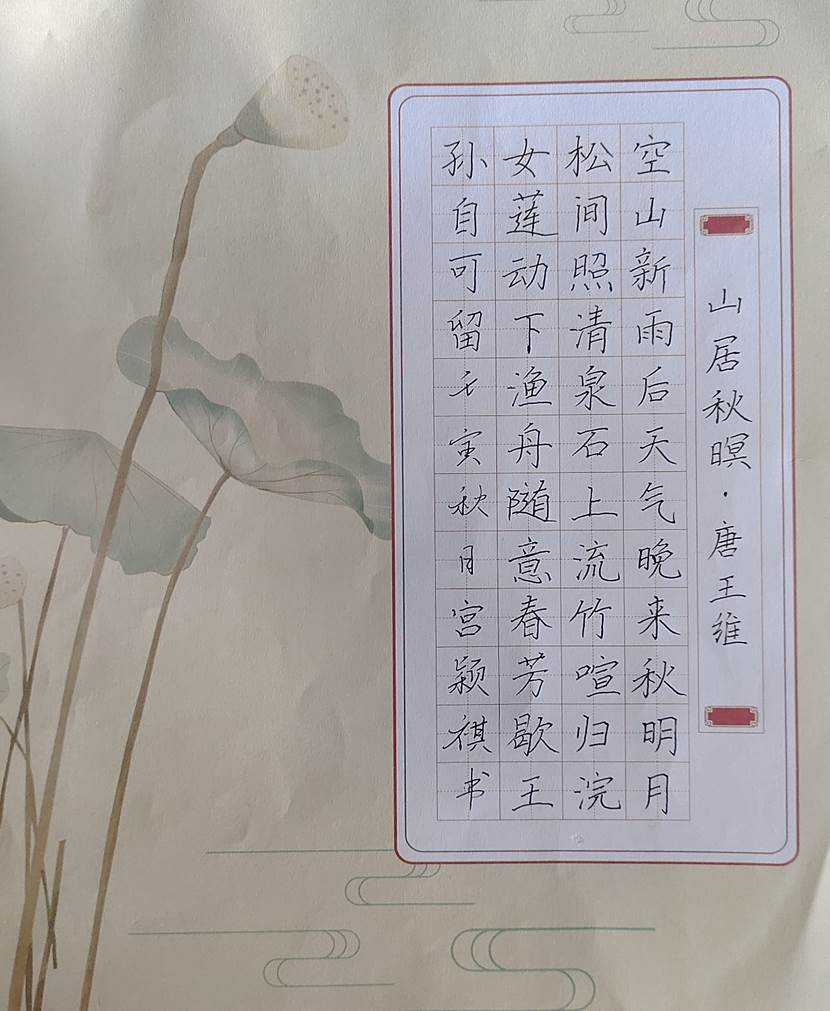 山居秋暝·唐王维
空山新雨后天气晚来秋明月
松间照清泉石上流竹喧归浣
女莲动下渔舟随意春芳歇王
孙自可留壬寅秋月宫颖祺书